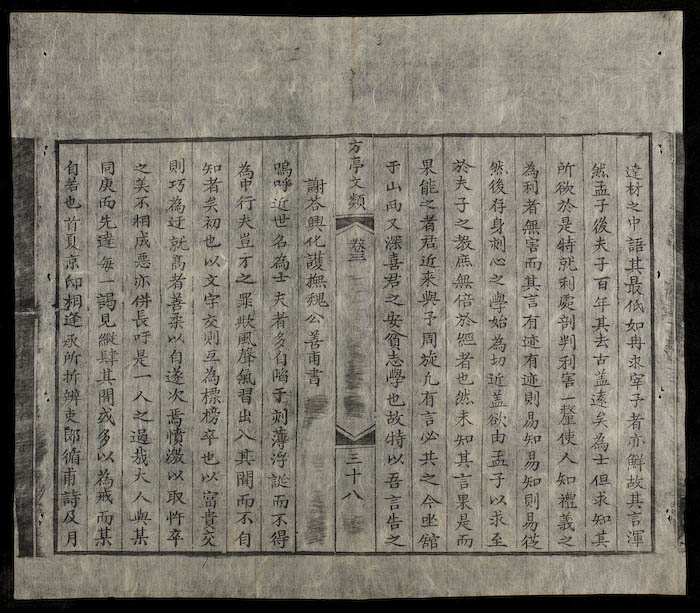 達材之中語其最低如冉求宰子者亦鮮故其言渾
然孟子後夫子百年其去古蓋遠矣為士但求知其
所欲於是特就利處剖判利害一螫使人知禮義之
為利者無害而其言有迹有迹則易知易知則易從
然後存身刻心之學始為切近蓋欲由孟子以求至
於夫子之教庶無倍於經者也然未知其言果是而
果能之者君近来與予周旋允有言必共之今坐舘
于山西又深喜君之安貧志學也故特以吾言告之
方亭文類
卷三
三十八
謝荅興化護撫魏公善甫書
嗚呼近世名為士夫者多自陷于刺薄浮誕而不得
為中行夫豈才之罪欺風聲氣習出入其間而不自
知者矣初也以文字交則互為標榜卒也以富貴交
則巧為迂就髙者善柔以自遂次焉憤激以取忤卒
之美不相成惡亦併長吁是一人之過哉大人與某
同庚而先達每一謁見縱肆其閒或多以為戒而某
自若也首夏京邸相逢承所折辨吏郎循甫詩及月